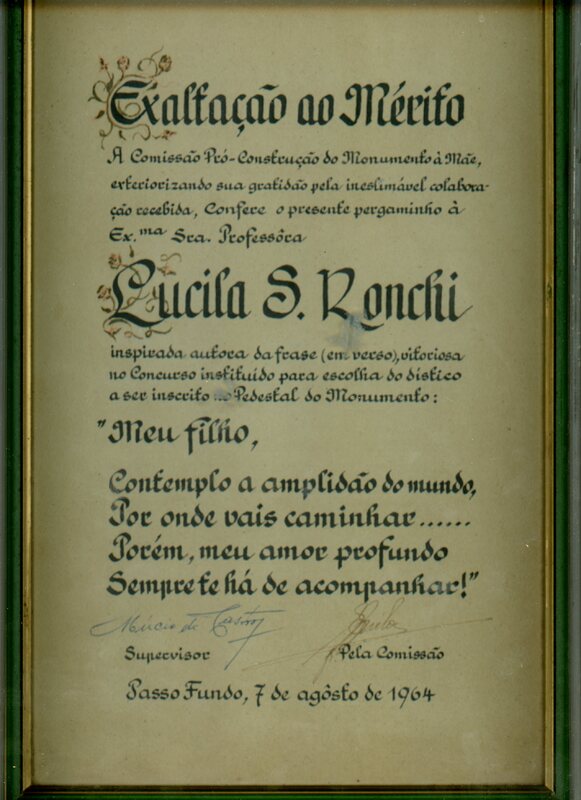 Exaltação ao Mérito
A Comissão Pró-Construção do Monumento à Mãe,
exteriorizando sua gratidão pela inestimável colabora-
ção recebida, Confere o presente pergaminho à
Ex.ma Sra. Professôra
Lucila S. Ronchi
inspirada autora da frase (em verso), vitoriosa
no Concurso instituído para escolha do dístico
a ser inscrito no Pedestal do Monumento:
"Meu filho,
Contemplo a amplidão do mundo,
Por onde vais caminhar......
Porém, meu amor profundo
Sempre te há de acompanhar!"
de Castro
Supervisor Pela Comissão
Passo Fundo, 7 de agôsto de 1964